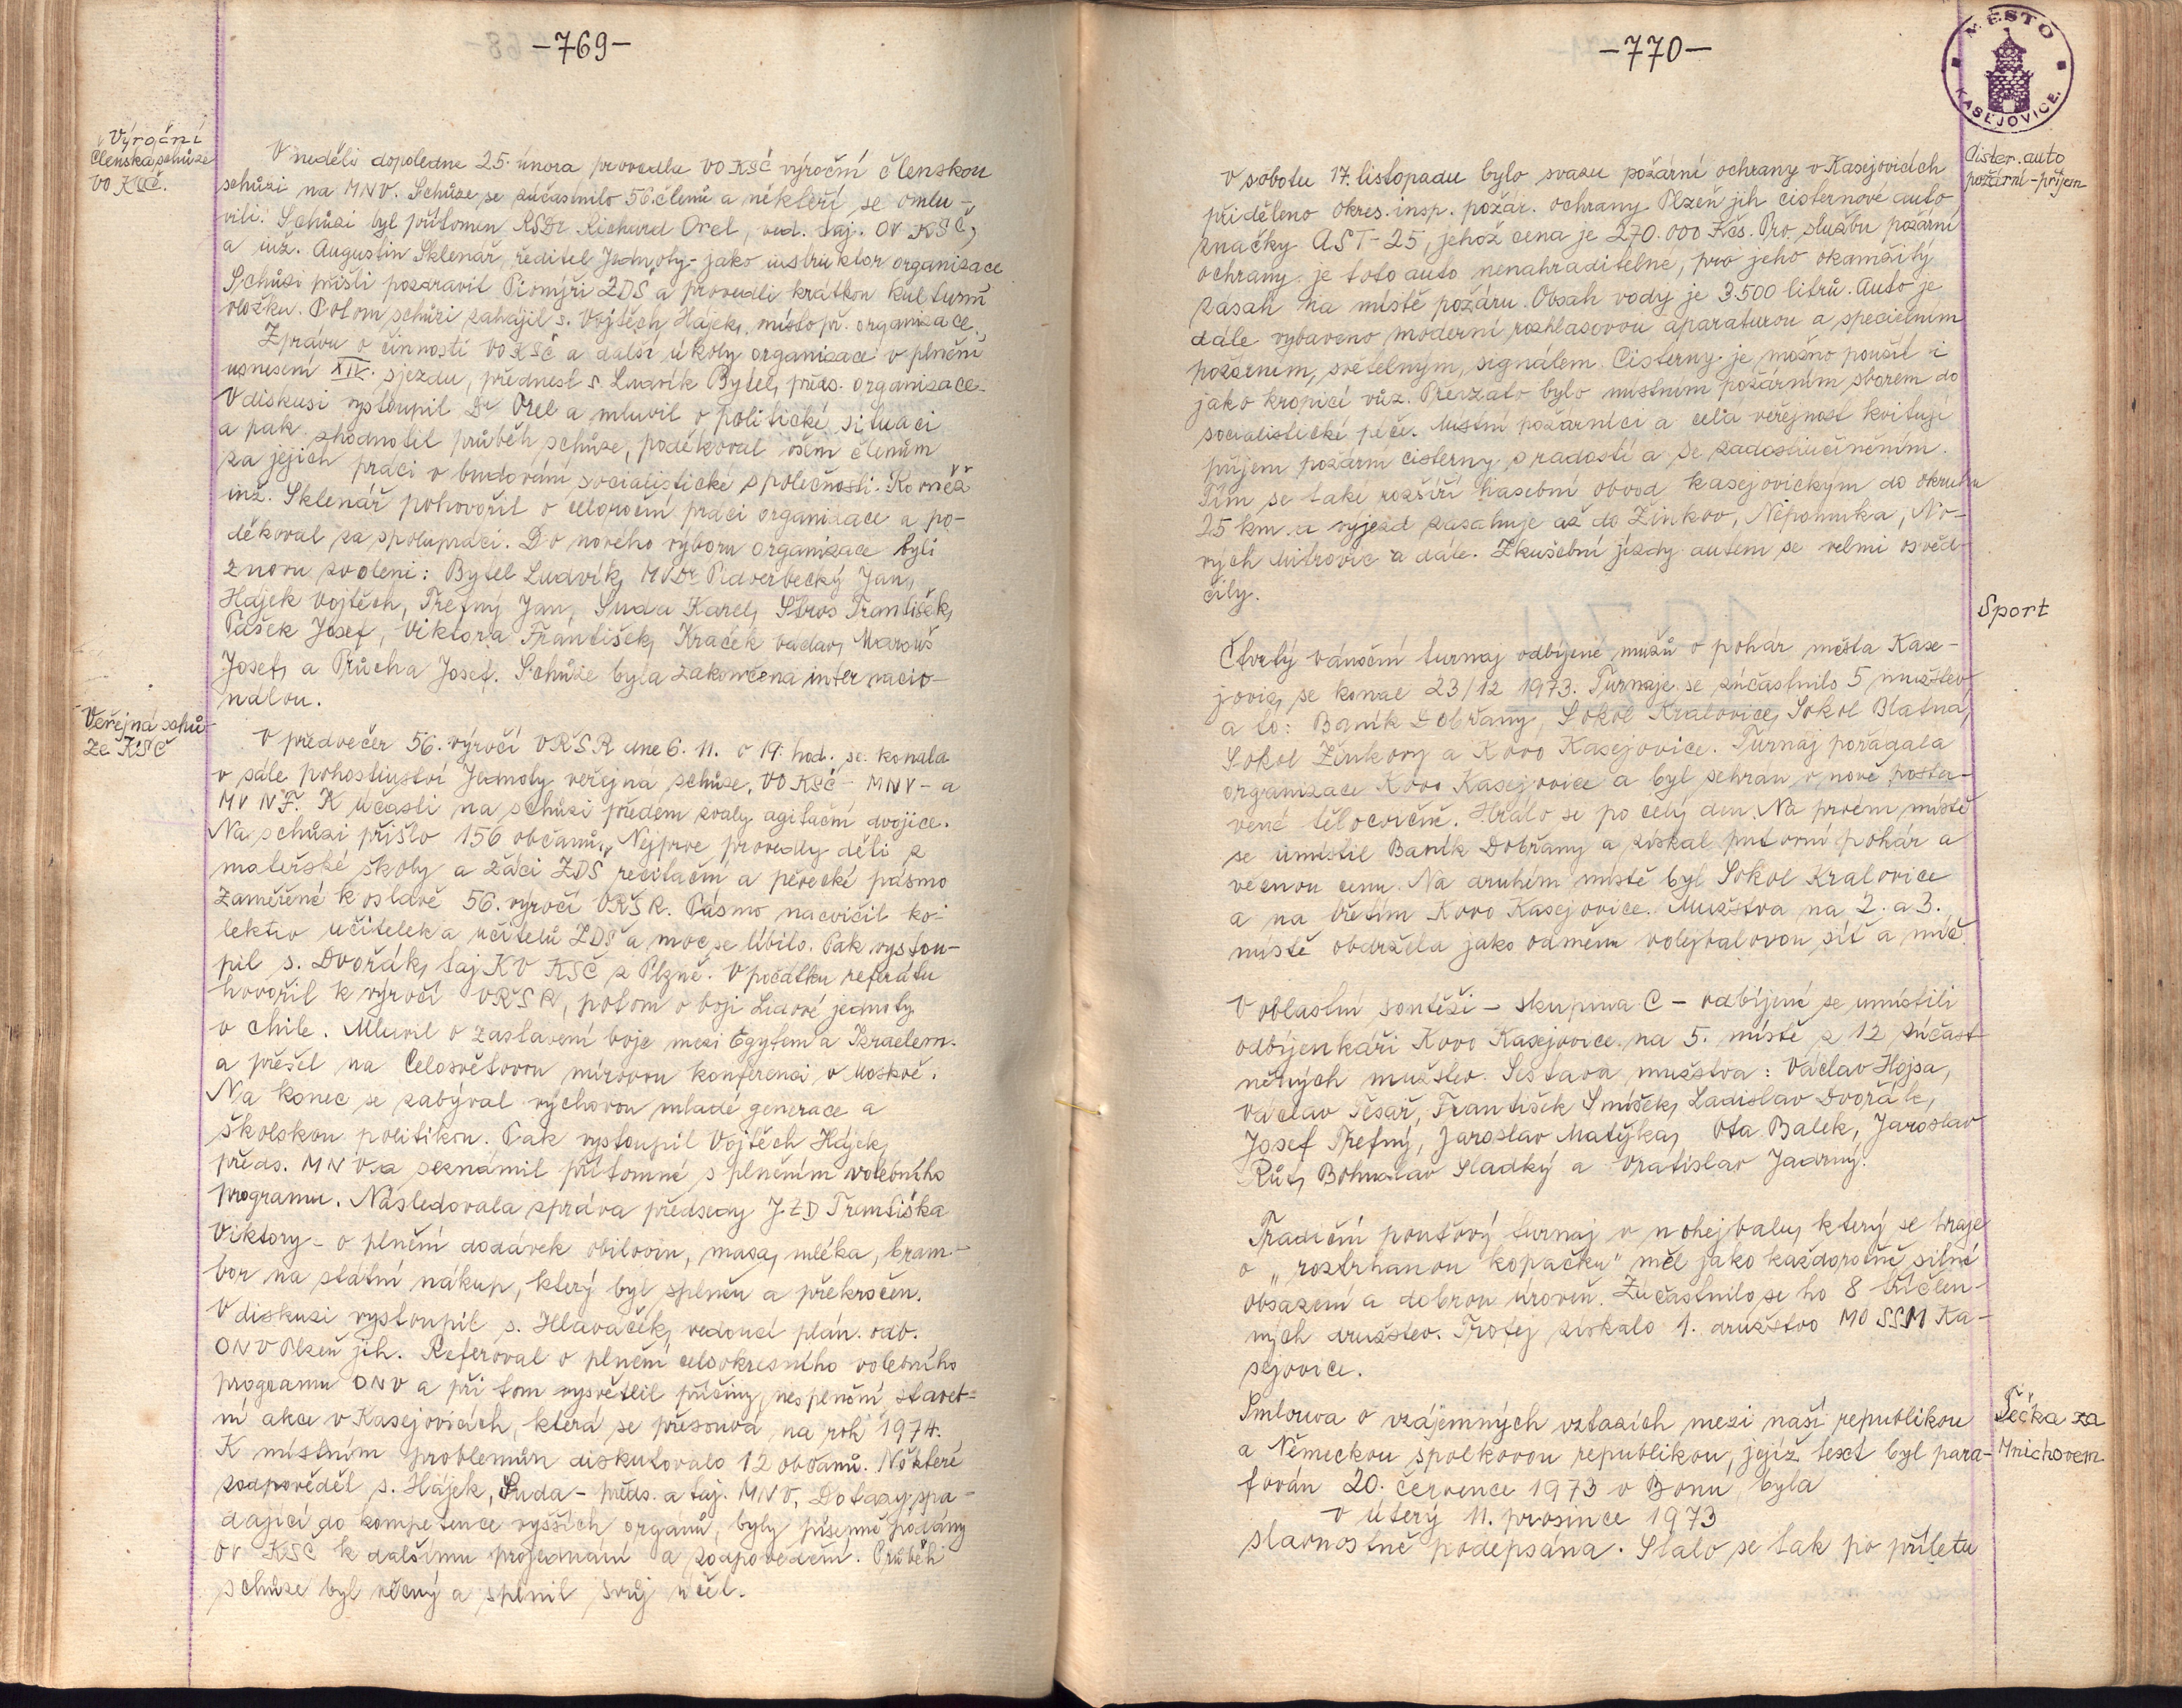 -769-
Výroční
členská schůze
VO KSČ.
V neděli dopoledne 25. února provedla VO KSČ výroční členskou
schůzi na MNV. Schůze se zúčastnilo 56 členů a někteří se omlu-
vili. Schůzi byl přítomen RSDr Richard Orel, ved. taj. OV KSČ,
a inž. Augustin Sklenář, ředitel Jednoty - jako instruktor organizace
Schůzi přišli pozdravit Pionýři ZDŠ a provedli krátkou kulturní
vložku. Potom schůzi zahájil s. Vojtěch Hájek, místopř. organizace.
Zprávu o činnosti VO KSČ a další úkoly organizace v plnění
usnesení XIV. sjezdu, přednesl s. Ludvík Bytel, předs. organizace.
V diskusi vystoupil Dr Orel a mluvil o politické situaci
a pak zhodnotil průběh schůze, poděkoval všem členům
za jejich práci v budování socialistické společnosti. Rovněž
inž. Sklenář pohovořil o celoroční práci organizace a po-
děkoval za spolupráci. Do nového výboru organizace byli
znovu zvoleni: Bytel Ludvík, MVDr Pidverbecký Jan,
Hájek Vojtěch, Třefný Jan, Suda Karel, Štros František,
Pašek Josef, Viktora František, Kraček Václav, Marouš
Josef, a Průcha Josef. Schůze byla zakončena internacio-
nálou.
Veřejná schů-
ze KSČ
V předvečer 56. výročí VŘSR dne 6. 11. v 19. hod. se konala
v sále pohostinství Jednoty veřejná schůze, VO KSČ - MNV - a
MV NF. K účasti na schůzi předem zvaly agitační dvojice.
Na schůzi přišlo 156 občanů. Nejprve provedly děti z
mateřské školy a žáci ZDŠ recitační a pěvecké pásmo
zaměřené k oslavě 56. výročí VŘSR. Pásmo nacvičil ko-
lektiv učitelek a učitelů ZDŠ a moc se líbilo. Pak vystou-
pil s. Dvořák, taj KV KSČ z Plzně. V počátku referátu
hovořil k výročí VŘSR, potom o boji Lidové jednoty
v Chile. Mluvil o zastavení boje mezi Egyptem a Izraelem.
a přešel na Celosvětovou mírovou konferenci v Moskvě.
Na konec se zabýval výchovou mladé generace a
školskou politikou. Pak vystoupil Vojtěch Hájek,
předs. MNV a seznámil přítomné s plněním volebního
programu. Následovala zpráva předsedy JZD Františka
Viktory - o plnění dodávek obilovin, masa, mléka, bram-
bor na státní nákup, který byl splněn a překročen.
V diskuzi vystoupil s. Hlaváček, vedoucí plán. odb.
ONV Plzeň jih. Referoval o plnění celookresního volebního
programu ONV a při tom vysvětlil příčiny nesplnění staveb-
ní akce v Kasejovicích, která se přesouvá na rok 1974.
K místním problémům diskutovalo 12 občanů. Některé
zodpověděl s. Hájek, Suda - předs. a taj. MNV. Dotazy, spa-
dající do kompetence vyšších orgánů, byly písemně podány
OV KSČ k dalšímu projednání a zodpovědění. Průběh
schůze byl věcný a splnil svůj účel.
-770-
MĚSTO
KASEJOVICE.
Cister. auto
požární - příjem
V sobotu 17. listopadu bylo svazu požární ochrany v Kasejovicích
přiděleno Okres. insp. požár. ochrany Plzeň jih cisternové auto
značky AST-25, jehož cena je 270.000 Kčs. Pro službu požární
ochrany je toto auto nenahraditelné, pro jeho okamžitý
zásah na místě požáru. Obsah vody je 3.500 litrů. Auto je
dále vybaveno moderní rozhlasovou aparaturou a specielním
požárním, světelným, signálem. Cisterny je možno použít i
jako kropicí vůz. Převzato bylo místním požárním sborem do
socialistické péče. Místní požárníci a celá veřejnost kvitují
příjem požární cisterny s radostí a se zadostiučiněním.
Tím se také rozšíří hasební obvod kasejovickým do okruhu
25 km. a výjezd zasahuje až do Žinkov, Nepomuka, No-
vých Mitrovic a dále. Zkušební jízdy autem se velmi osvěd-
čily.
Sport
Čtvrtý vánoční turnaj odbíjené mužů o pohár města Kase-
jovic, se konal 23/12 1973. Turnaje se zúčastnilo 5 mužstev
a to: Baník Dobřany, Sokol Kralovice, Sokol Blatná,
Sokol Žinkovy a Kovo Kasejovice. Turnaj pořádala
organizace Kovo Kasejovice a byl sehrán v nově posta-
vené tělocvičně. Hrálo se po celý den. Na prvém místě
se umístil Baník Dobřany a získal putovní pohár a
věcnou cenu. Na druhém místě byl Sokol Kralovice
a na třetím Kovo Kasejovice. Mužstva na 2. a 3.
místě obdržela jako odměnu volejbalovou síť a míč.
V oblastní soutěži - skupina C - odbíjené se umístili
odbíjenkáři Kovo Kasejovice na 5. místě z 12 zúčast-
něných mužstev. Sestava mužstva: Václav Hojsa,
Václav Tesař, František Smíšek, Ladislav Dvořák,
Josef Třefný, Jaroslav Matějka, Ota Balek, Jaroslav
Růt, Bohuslav Sladký a Vratislav Jadrný.
Tradiční pouťový turnaj v nohejbalu, který se hraje
o „roztrhanou kopačku" měl jako každoročně silné
obsazení a dobrou úroveň. Zúčastnilo se ho 8 tříčlen-
ných družstev. Trofej získalo 1. družstvo MO SSM Ka-
sejovice.
Tečka za
Mnichovem
Smlouva o vzájemných vztazích mezi naší republikou
a Německou spolkovou republikou, jejíž text byl para-
fován 20. července 1973 v Bonu, byla
v úterý 11. prosince 1973
slavnostně podepsána. Stalo se tak po příletu